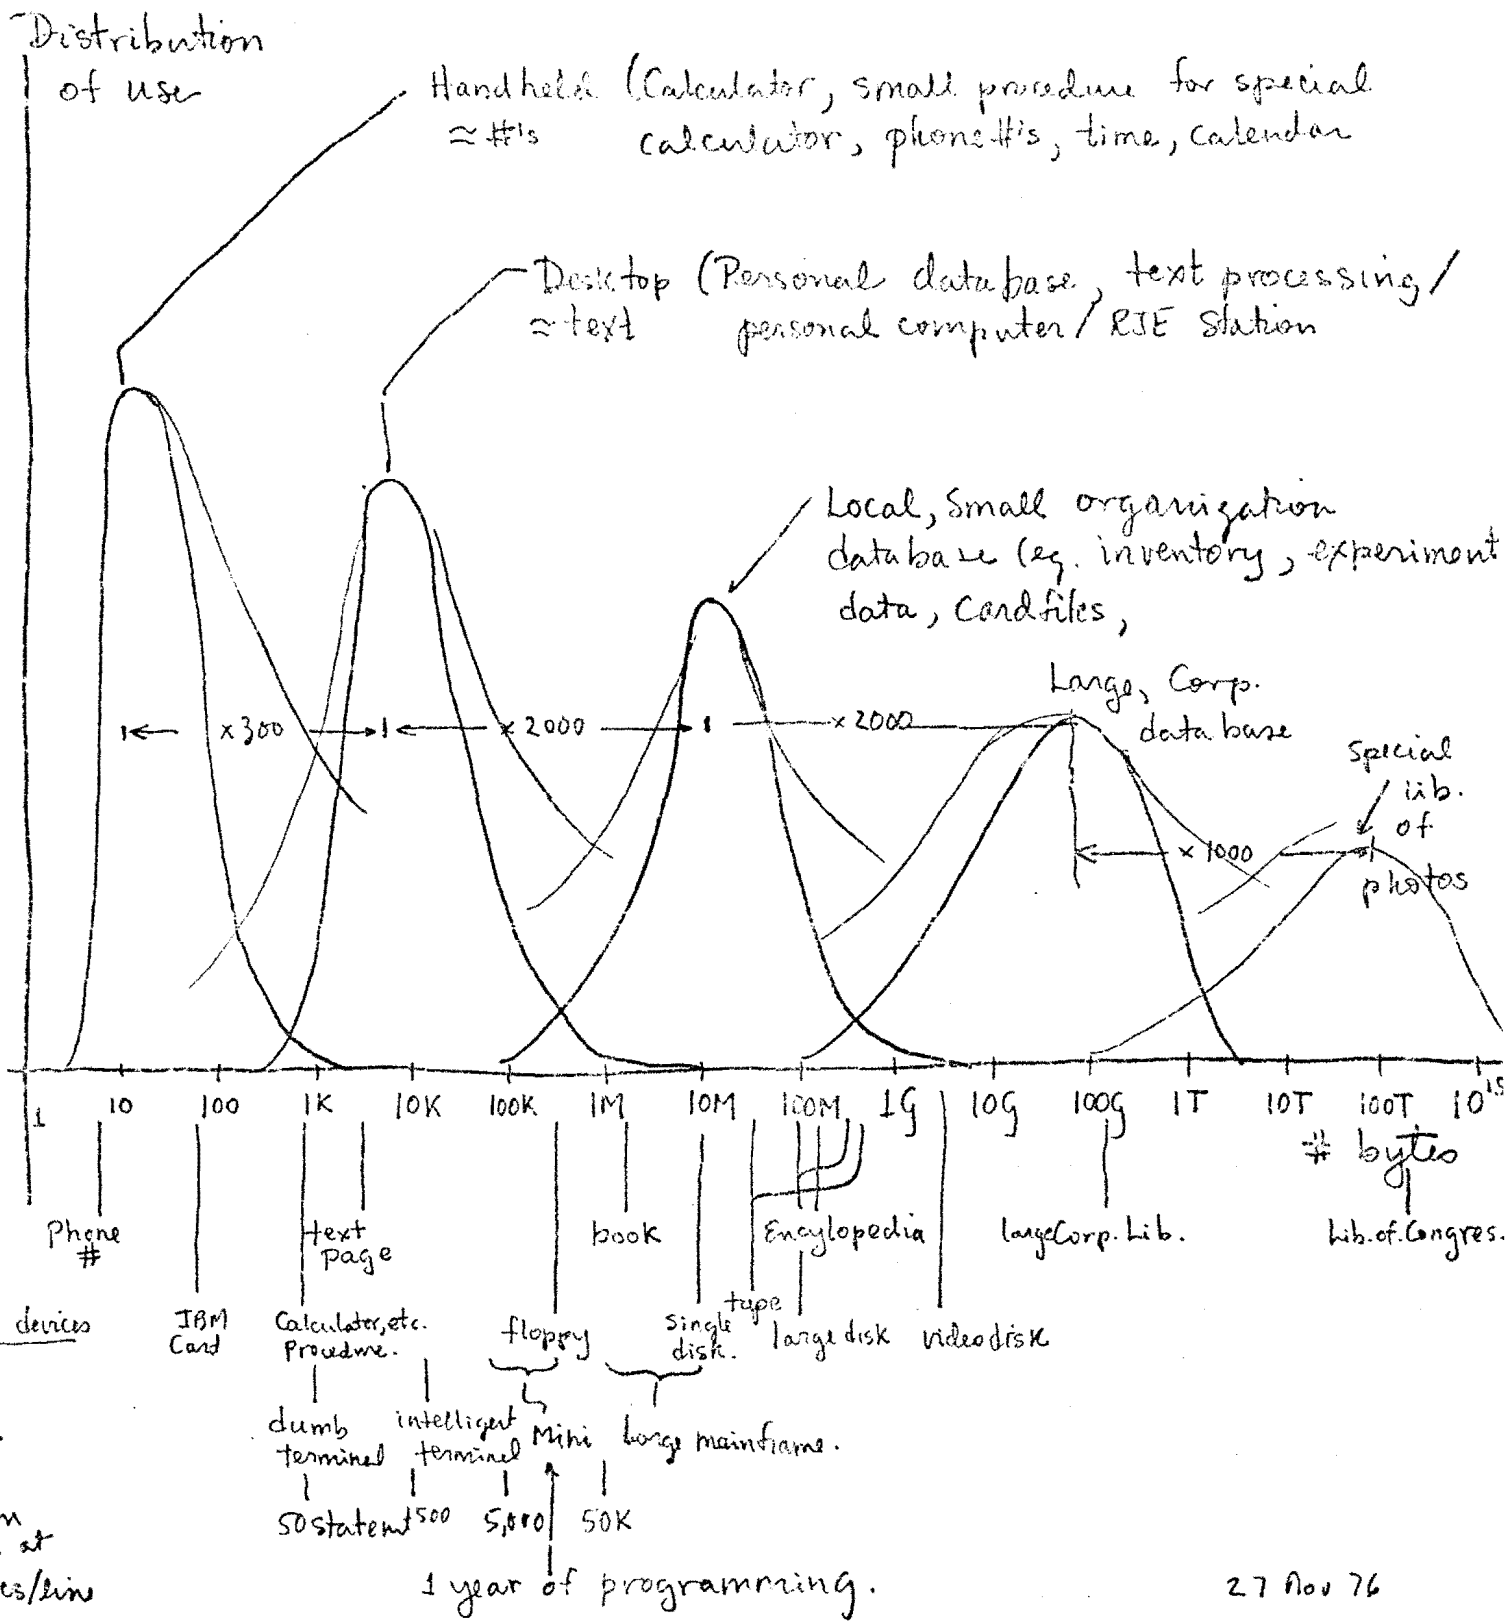 Distribution
of use
Handheld (Calculator, small procedure for special
≈ #'s calculator, phone #'s, time, calendar
Desktop (Personal database, text processing/
≈ text personal computer/ RJE Station
Local, Small organization
database (eg. inventory, experiment
data, Cardfiles,
Large, Corp.
data base
special
lib.
of
photos
x300
x 2000
x 2000
x 1000
1 10 100 1K 10K 100K 1M 10M 100M 1G 10G 100G 1T 10T 100T 10¹⁵
# bytes
Phone
#
text
page
book
Encylopedia
large Corp. Lib.
Lib. of. Congres.
devices
IBM
Card
Calculator, etc.
Procedure.
floppy
Single
disk.
tape
large disk
videodisk
dumb
terminal
intelligent
terminal
Mini
Large mainframe.
50 statemt 500 5,000 50K
at
es/line
1 year of programming.
27 Nov 76